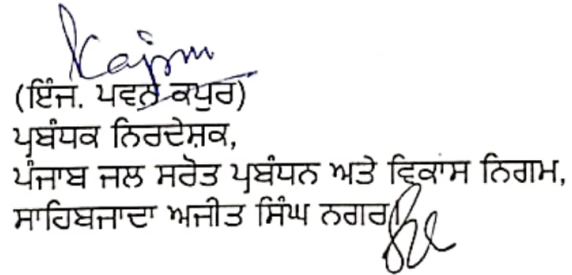 (ਇੰਜ. ਪਵਨ ਕਪੁਰ)
ਪ੍ਰਬੰਧਕ ਨਿਰਦੇਸ਼ਕ,
ਪੰਜਾਬ ਜਲ ਸਰੋਤ ਪ੍ਰਬੰਧਨ ਅਤੇ ਵਿਕਾਸ ਨਿਗਮ,
ਸਾਹਿਬਜਾਦਾ ਅਜੀਤ ਸਿੰਘ ਨਗਰ।